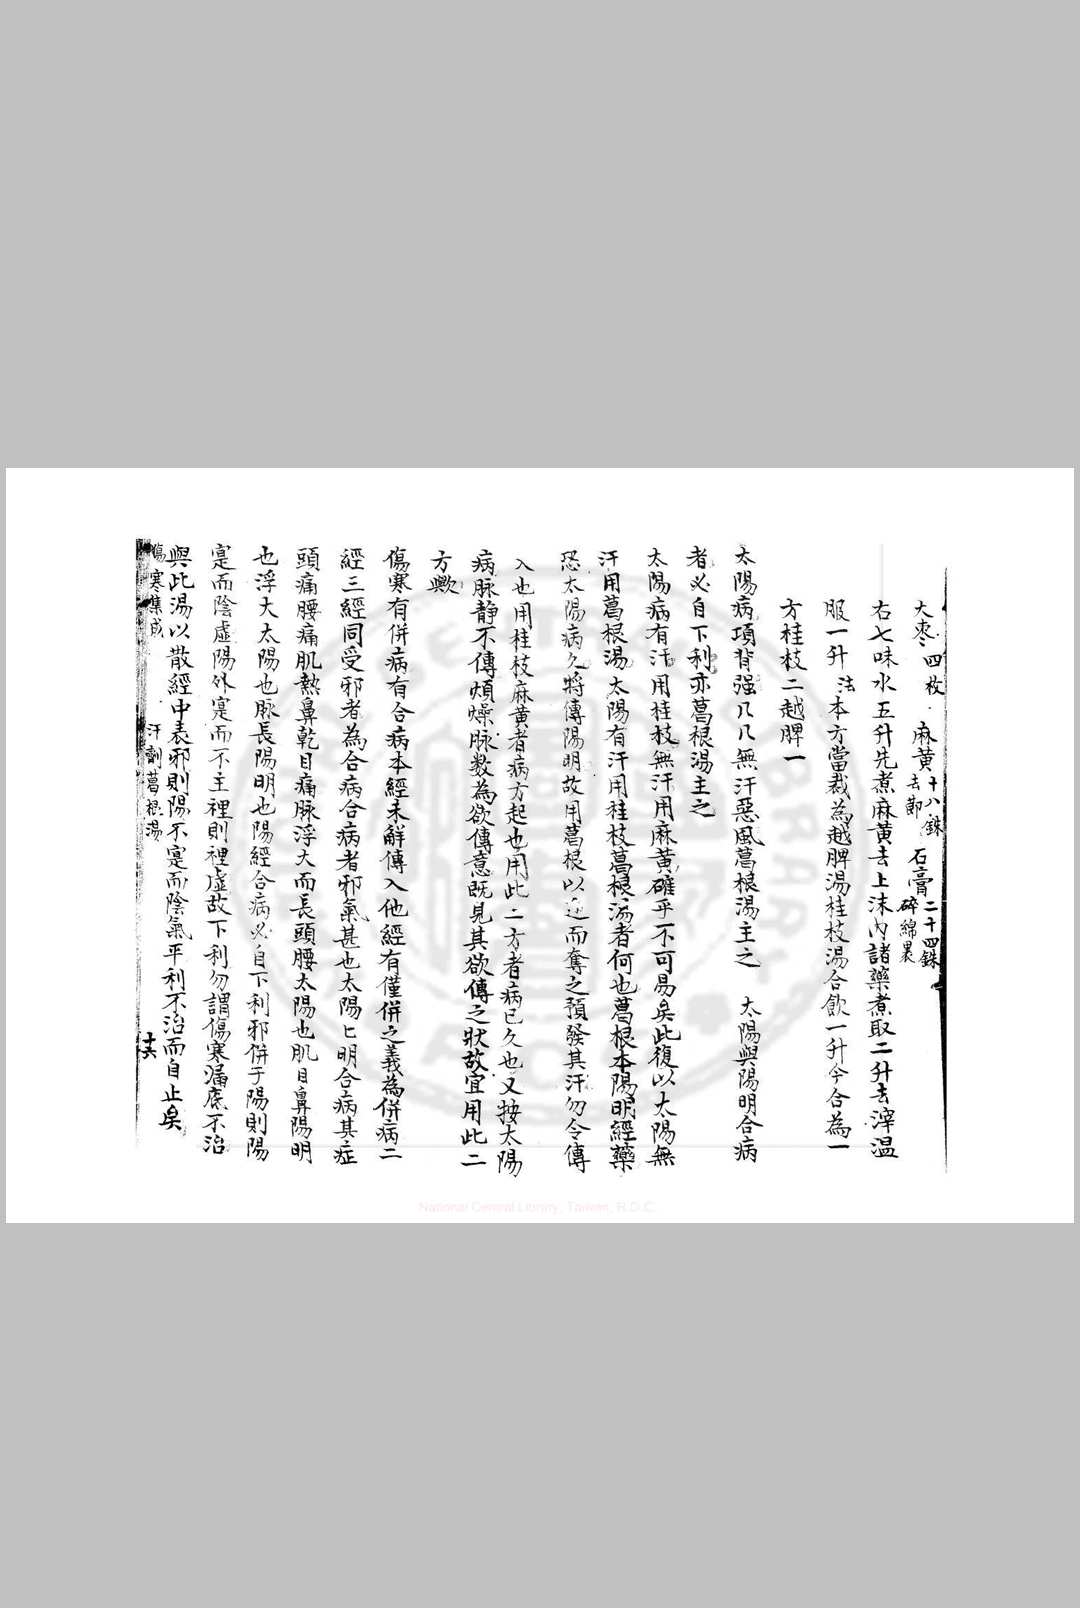 大枣四枚 麻黄十八銖去節 石膏二十四銖碎綿裹
右七味水五升先煮麻黄去上沫內諸藥煮取二升去滓温
服一升法本方當裁為越脾湯桂枝湯合飲一升今合為一
方桂枝二越脾一
太陽病項背强几几無汗惡風葛根湯主之 太陽與陽明合病
者必自下利亦葛根湯主之
太陽病有汗用桂枝無汗用麻黄確乎不可易矣此復以太陽無
汗用葛根湯太陽有汗用桂枝葛根湯者何也葛根本陽明經藥
恐太陽病久將傳陽明故用葛根以迎而奪之預發其汗勿令傳
入也用桂枝麻黄者病方起也用此二方者病已久也又按太陽
病脉靜不傳煩燥脉数為欲傳意既見其欲傳之狀故宜用此二
方歟
傷寒有併病有合病本經未解傳入他經有僅併之義為併病二
經三經同受邪者為合病合病者邪氣甚也太陽陽明合病其症
頭痛腰痛肌熱鼻乾目痛脉浮大而長頭腰太陽也肌目鼻陽明
也浮大太陽也脉長陽明也陽經合病必自下利邪併于陽則陽
寔而陰虛陽外寔而不主裡則裡虛故下利勿謂傷寒漏底不治
與此湯以散經中表邪則陽不寔而陰氣平利不治而自止矣
傷寒集成 汗劑葛根湯 十六
National Central Library, Taiwan, R.O.C.